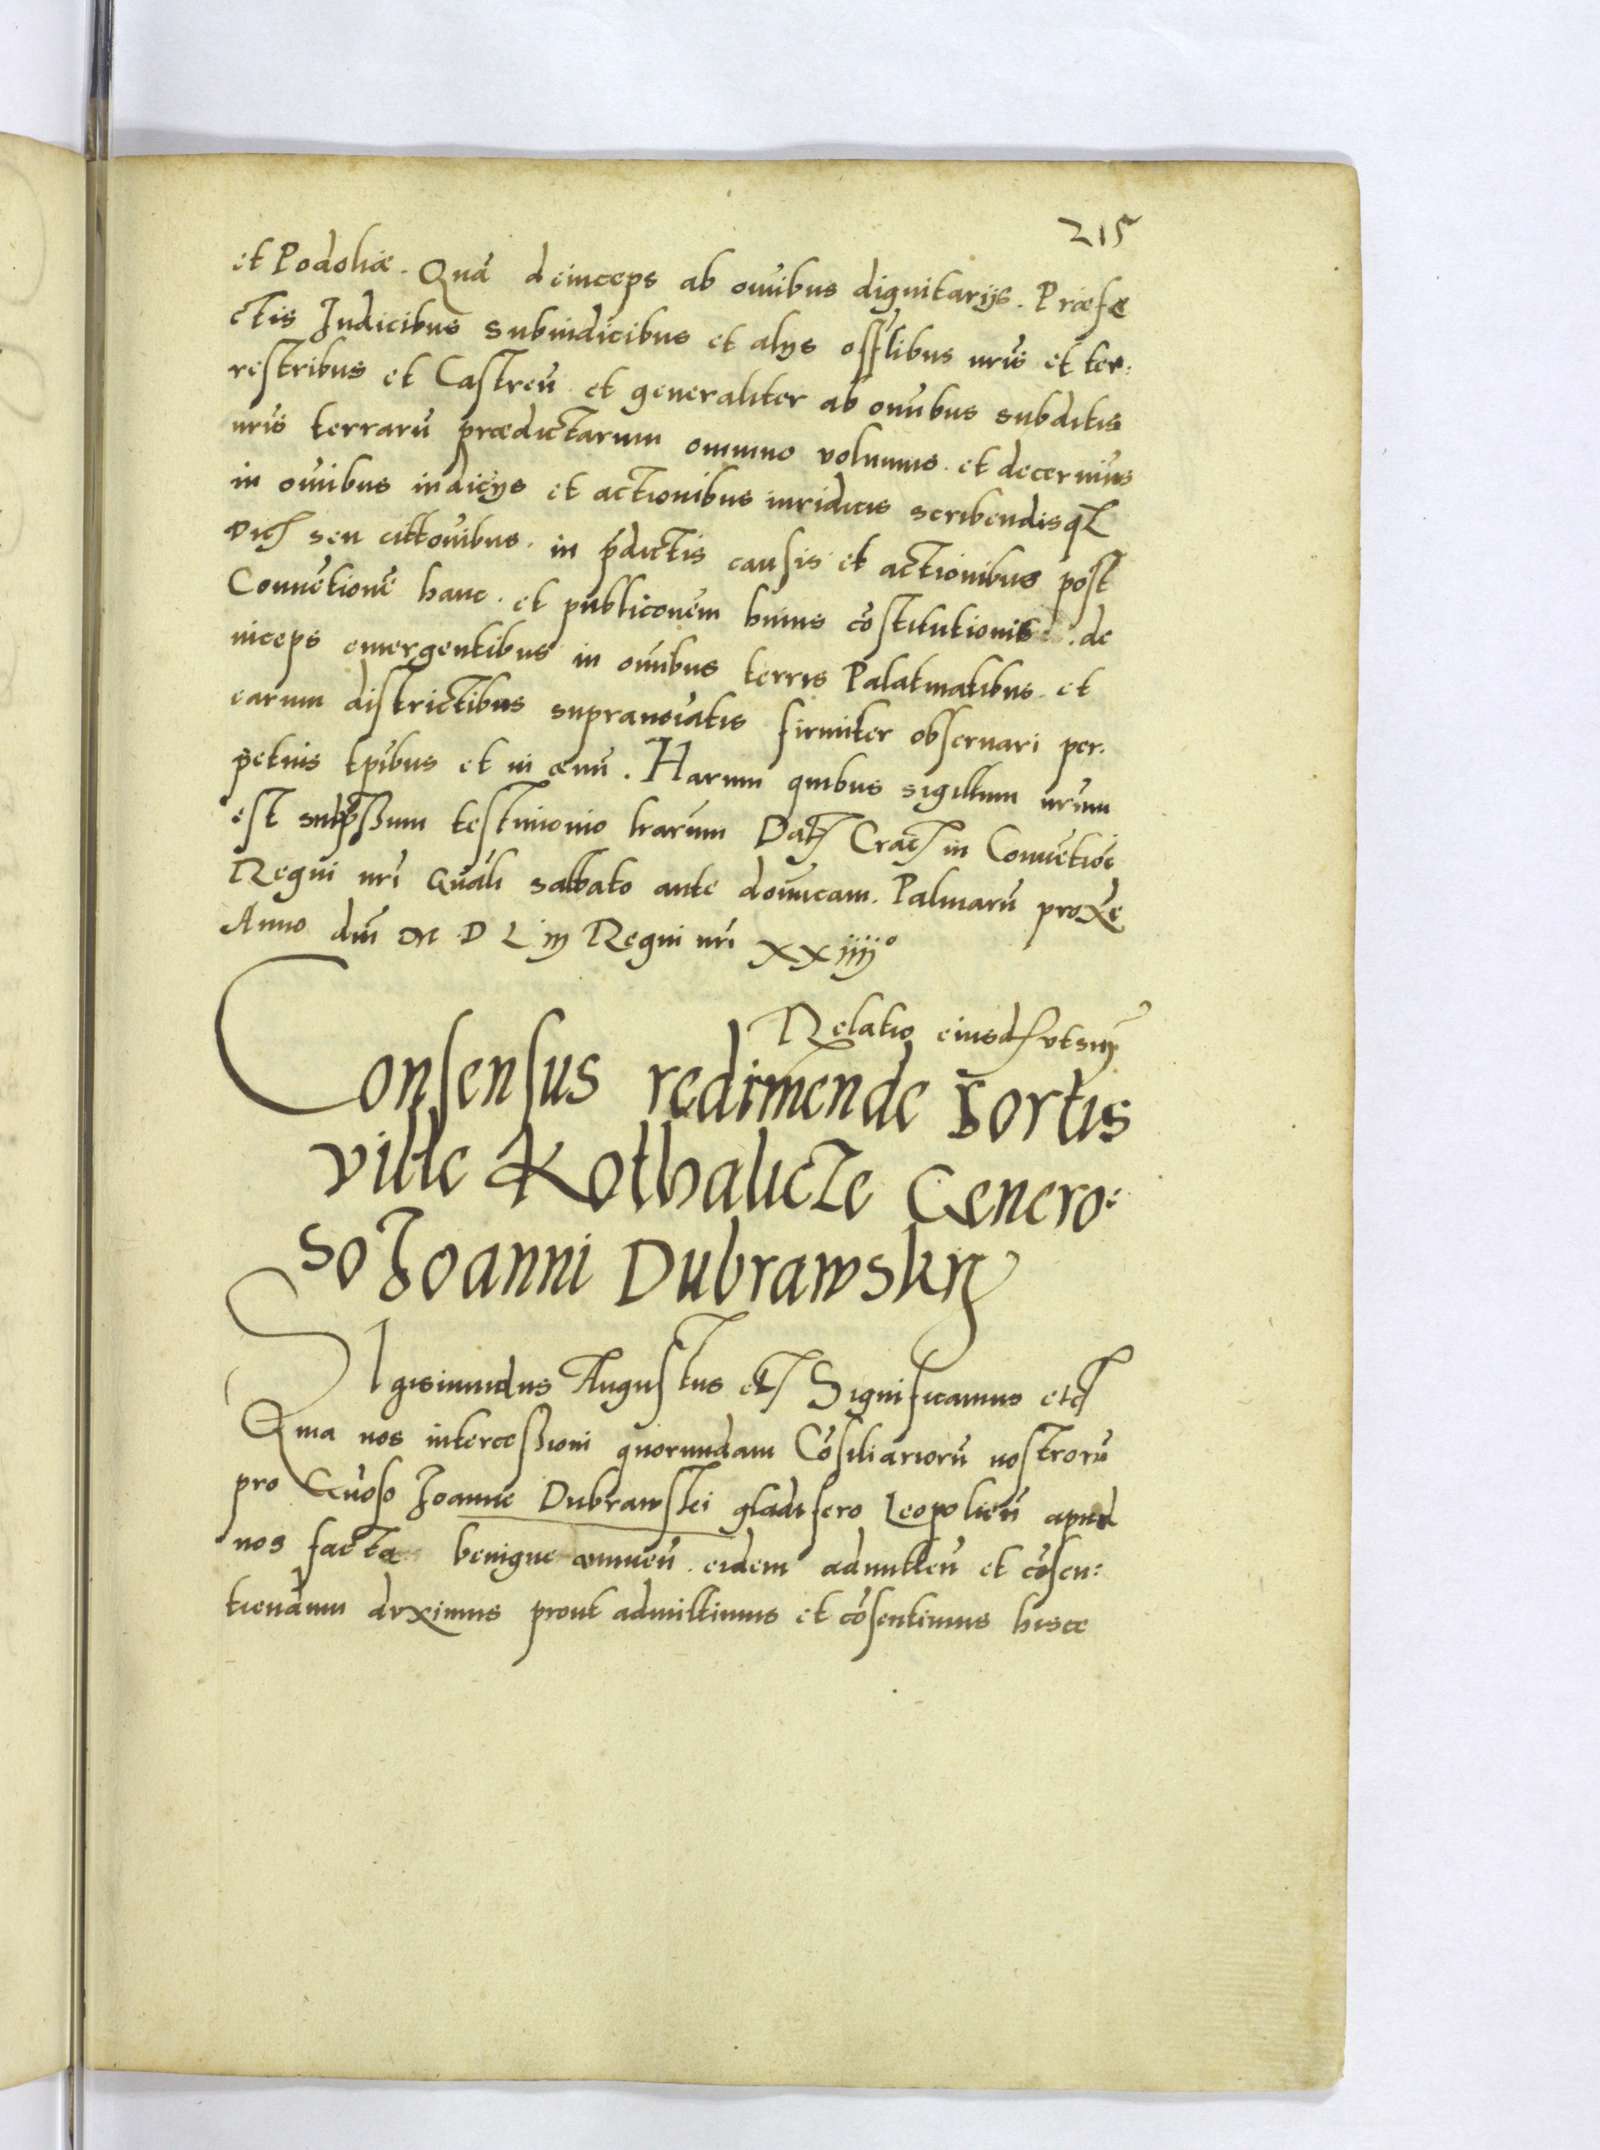 215
et Podoliæ. Quā deinceps ab oībus dignitarijs. Præfe
ctis Judicibus subiudicibus et alijs offlibus nrīs et ter:
restribus et Castreñ. et generaliter ab oībus subditis
nrīs terrarū prædictarum omnino volumus. et decernim̄us
in oībus iudicijs et actionibus iuridicis scribendisq
seu cittoībus. in p̄dictis causis et actionibus post
Conuētionē hanc. et publicōnem huius cōstitutionis de
inceps emergentibus in oībus terris Palatinatibus. et
earum districtibus supranoīatis firmiter obseruari per.
petuis tp̄ibus et in æuū. Harum quibus sigillum nrūm
est subp̄ssum testimonio lrarum Dat Crac in Conuētiōe
Regni nrī Gnāli sabbato ante domīcam. Palmarū proxe
Anno dnī M D L iij Regni nrī XXiiij°
Relatio eiusd vtsup
Consensus redimende sortis
ville Kothalicze Genero:
so Joanni Dubrawsky
SIgismundus Augustus etc Significamus etc
Quia nos intercessioni quorundam Cōsiliariorū nostrorū
pro Gnōso Joanne Dubrawski gladifero Leopolieñ apud
nos factæ benigne annueñ. eidem admitteñ et cōsen:
tiendum duximus prout admittimus et cōsentimus hisce